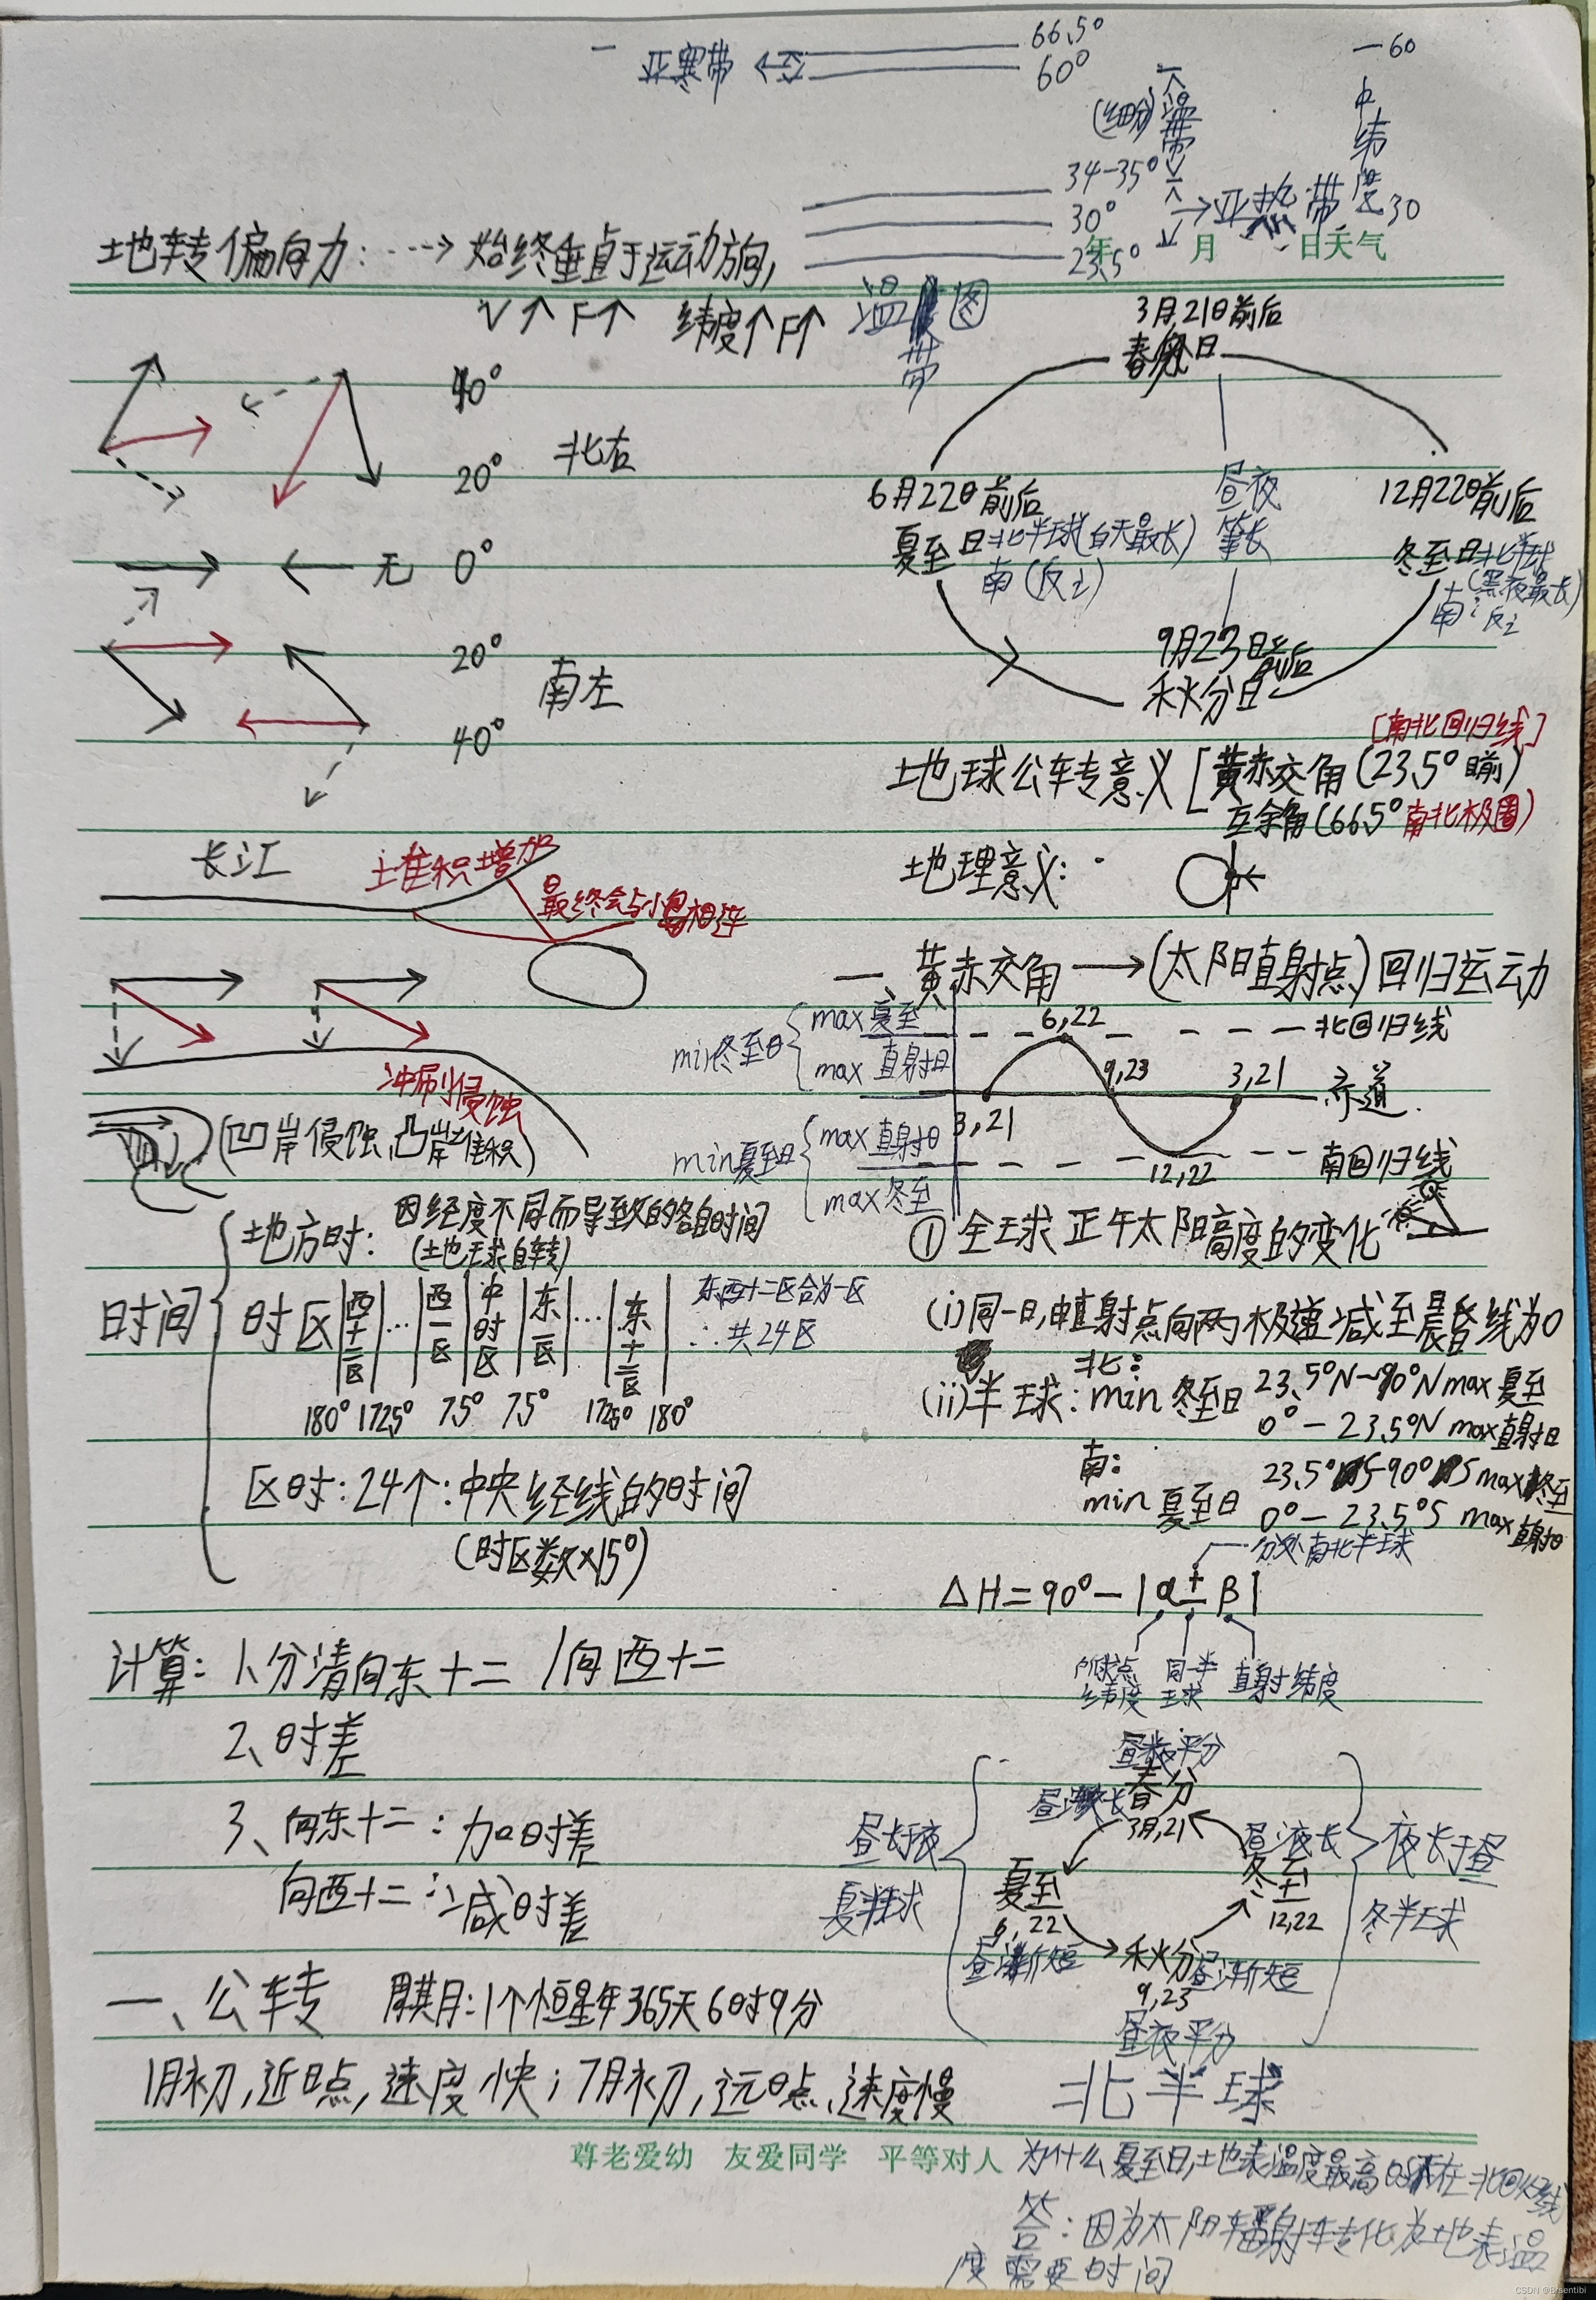 亚寒带
66.5°
60°
60
(细分)
温带
中纬度
34-35°
30°
→亚热带
30
23.5°
年 月 日 天气
地转偏向力: ---→ 始终垂直于运动方向,
V↑ F↑ 纬度↑F↑
温带图
40°
20°
北右
无 0°
20°
南左
40°
3月,21日前后
春分日
6月22日前后
夏至日北半球(白天最长)
南(反之)
昼夜等长
12月22日前后
冬至日北半球
(黑夜最长)
南:反之
9月23日前后
秋分日
[南北回归线]
地球公转意义[黄赤交角(23.5°目前)
互余角(66.5°南北极圈)
地理意义:
长江
土堆积增加
最终会与小岛相连
冲刷侵蚀
(凹岸侵蚀,凸岸堆积)
一、黄赤交角→(太阳直射点)回归运动
min冬至日{max夏至
max直射日
6,22
北回归线
9,23
3,21
赤道
3,21
min夏至日{max直射日
max冬至
12,22
南回归线
时间
地方时: 因经度不同而导致的各自时间
(地球自转)
时区 西十二区 … 西一区 中时区 东一区 … 东十二区
东西十二区合为一区
∴共24区
180° 172.5° 7.5° 7.5° 172.5° 180°
区时:24个:中央经线的时间
(时区数×15°)
①全球正午太阳高度的变化
(i)同一日,由直射点向两极递减至晨昏线为0
(ii)半球:
北:
min冬至日 23.5°N~90°N max夏至
0°-23.5°N max直射日
南:
min夏至日 23.5°S-90°S max冬至
0°-23.5°S max直射日
分处南北半球
△H=90°-|α±β|
所求点纬度
同一半球
直射纬度
计算: 1、分清向东十二 /向西十二
2、时差
3、向东十二:加时差
向西十二:减时差
昼夜平分
春分
3月,21
昼渐长
昼渐长
昼长于夜
夏半球
夏至
6,22
冬至
12,22
夜长于昼
冬半球
昼渐短
秋分
9,23
昼渐短
昼夜平分
北半球
一、公转 周期:1个恒星年365天6时9分
1月初,近日点,速度快;7月初,远日点,速度慢
尊老爱幼 友爱同学 平等对人
为什么夏至日,地表温度最高时不在北回归线
答:因为太阳辐射转化为地表温
度需要时间
CSDN @Bisentibi